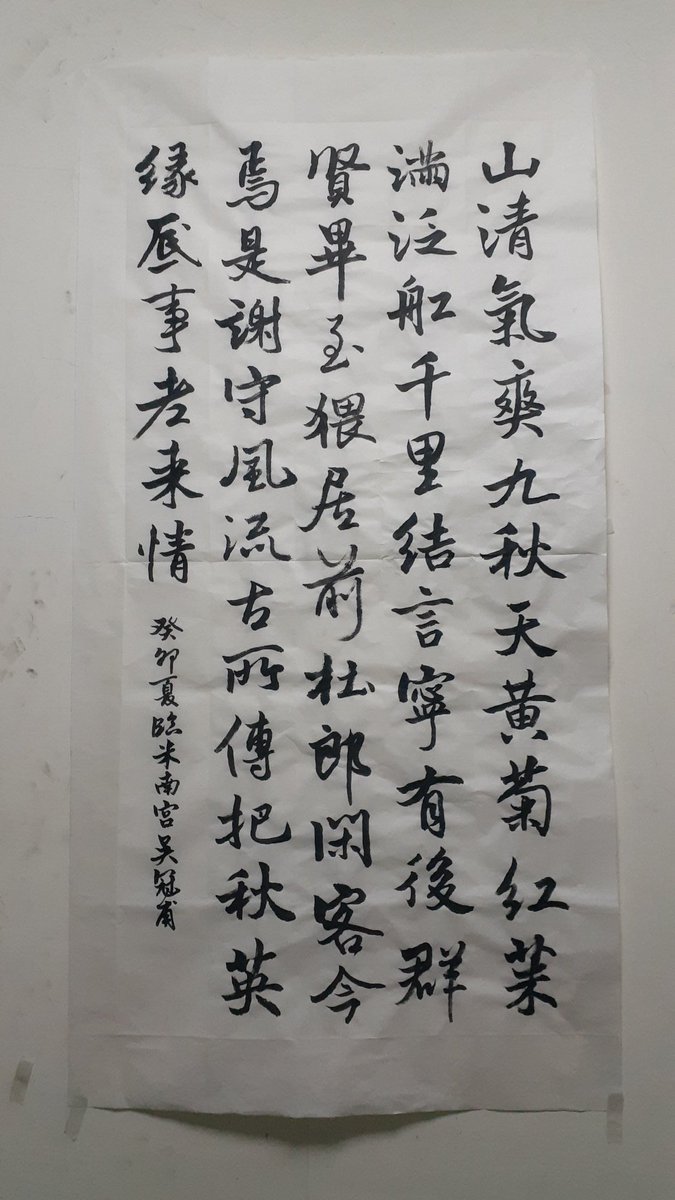 山清氣爽九秋天黄菊红茱
满泛舡千里结言寧有後群
賢畢至猥居前杜郎閑客今
焉是謝守風流古所傳把秋英
缘底事老来情
癸卯夏臨米南宫吴冠甫